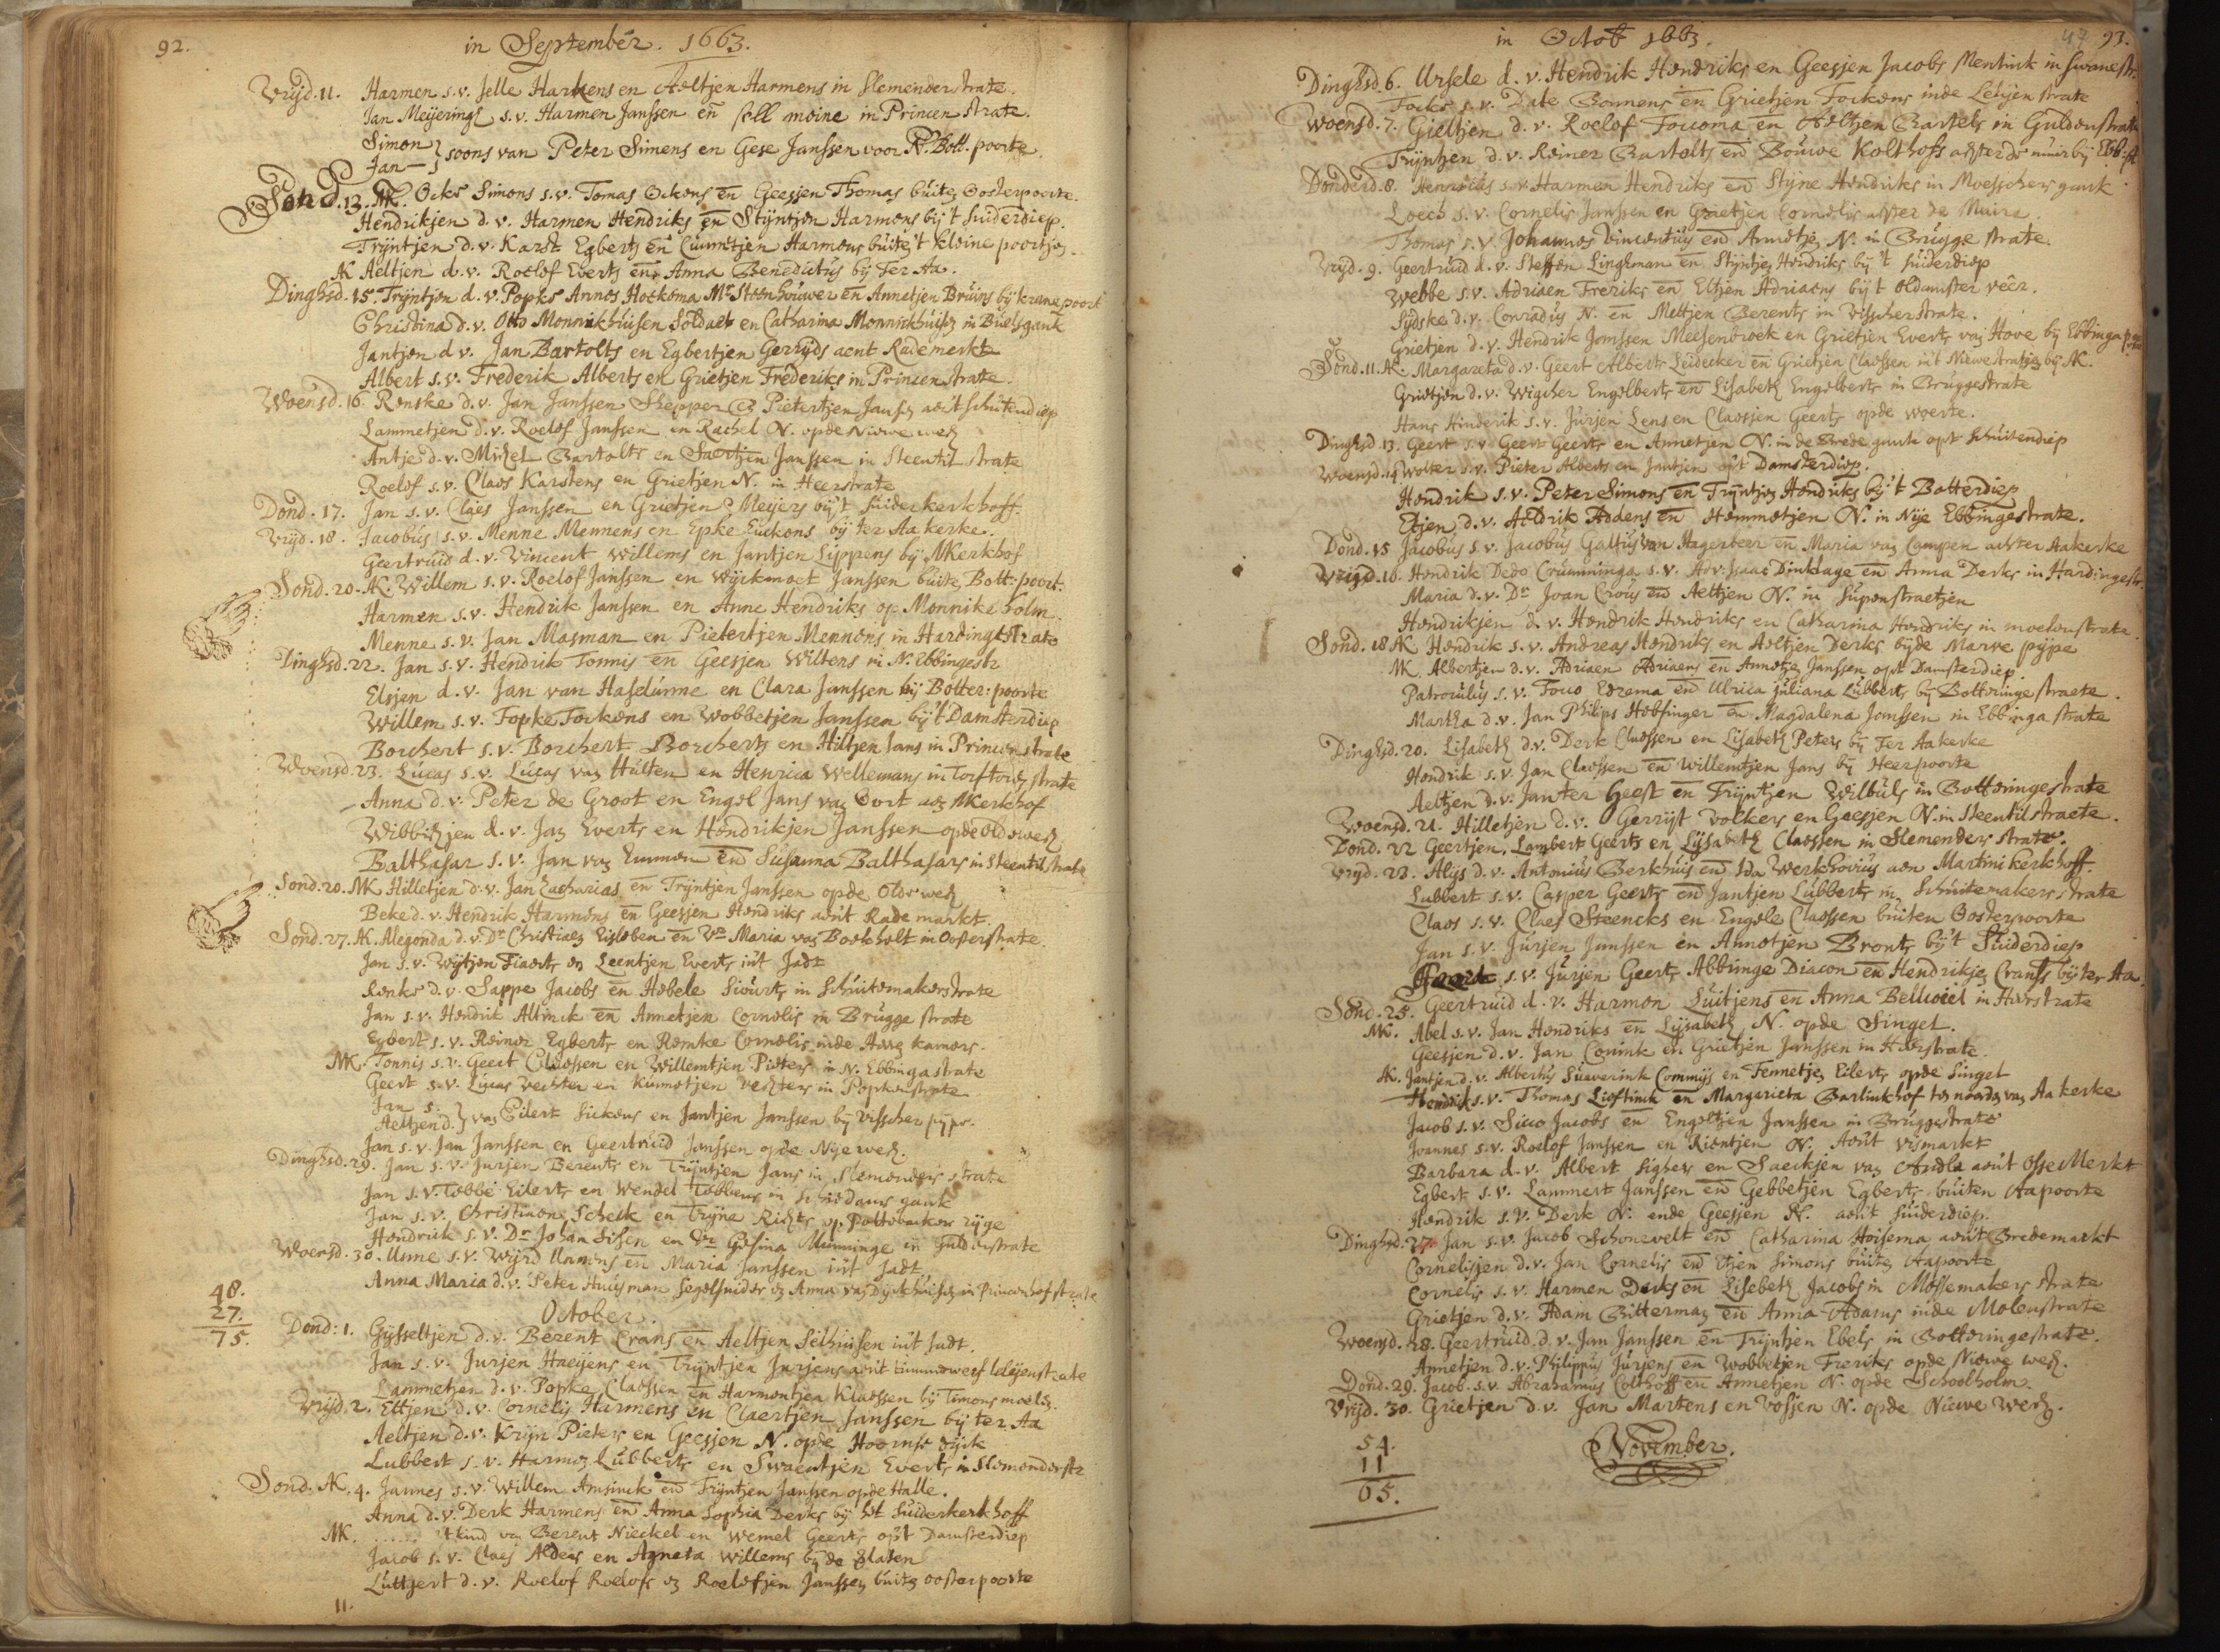 92.
in September. 1663.
Vrijd. 11. Harmen s.v. Jelle Harkens en Aeltjen Harmens in Slemenderstrate.
Jan Meijeringh s.v. Harmen Janssen en moine in Princen strate.
Simon
Jan } soons van Peter Simens en Gese Janssen voor Bott. poorte
Sond. 13. AK. Ocke Simons s.v. Tomas Ockens en Geesjen Thomas buiten Oosterpoorte.
Hendrikjen d.v. Harmen Hendriks en Stijntjen Harmens bij 't Suiderdiep.
Trijntjen d.v. Karst Egberts en Harmens buiten 't kleine poortjen.
AK Aeltjen d.v. Roelof Everts en Anna Benedictus bij Ter Aa.
Dinghsd. 15. Trijntjen d.v. Popke Annes Hoeksma Mr. Steenhouwer en Annetjen Bruins bij kranepoort
Christina d.v. Otto Monnikhuisen Soldaet en Catharina Monnikhuisen in Buelsgank
Jantjen d.v. Jan Bartolts en Egbertjen Gerrijds aent Rademerkt
Albert s.v. Frederik Alberts en Grietjen Frederiks in Princen strate.
Woensd. 16. Renske d.v. Jan Janssen Shepper en Pietertjen Janssen aen't schuitendiep
Lammetjen d.v. Roelof Janssen en Rachel N. opde Nieuwe wech
Antje d.v. Michel Bartolts en Janssen in Steentil strate
Roelof s.v. Claes Karstens en Grietjen N. in Heerstrate
Dond. 17. Jan s.v. Claes Janssen en Grietjen Meijers bij 't Suiderkerkhoff.
Vrijd. 18. Jacobus s.v. Menne Mennens en Epke Euckens bij ter Aa kerke.
Geertruid d.v. Vincent Willems en Jantjen Lippens bij AKerkhof
Sond. 20. AK. Willem s.v. Roelof Janssen en Janssen buiten Bott: poort.
Harmen s.v. Hendrik Janssen en Anne Hendriks op Monnike holm
Menne s.v. Jan Masman en Pietertjen Mennens in Hardingestrate
Dinghsd. 22. Jan s.v. Hendrik Tonnis en Geesjen Willens in N. Ebbingestr
Elsjen d.v. Jan van Haselunne en Clara Janssen bij Botter: poorte
Willem s.v. Fopke Fockens en Wobbetjen Janssen bij 't Damsterdiep
Borchert s.v. Borchert Borcherts en Hiltjen Jans in Princen strate
Woensd. 23. Lucas s.v. Lucas van Hulten en Henrica Wellemans in strate
Anna d.v. Peter de Groot en Engel Jans van Oort aen AKerkhof
Wibbichjen d.v. Jan Everts en Hendrikjen Janssen opde Olde wech
Balthasar s.v. Jan van Emmen en Susanna Balthasars in Steentilstrate
Sond. 20. MK Hilletjen d.v. Jan Zacharias en Trijntjen Janssen opde Olde wech
Beke d.v. Hendrik Harmens en Geesjen Hendriks aen't Rade markt.
Sond. 27. AK. Alegonda d.v. Dr Christiaen Eijsleben en Vr Maria van Boekholt in Oosterstrate
Jan s.v. Wijtjen en Leentjen Everts int Jadt
Renke d.v. Sappe Jacobs en Hebele Sieurts in Schuitemakerstrate
Jan s.v. Hendrik Altinck en Annetjen Cornelis in Brugge strate
Egbert s.v. Reiner Egberts en Remke Cornelis inde kamers.
MK. Tonnis s.v. Geert Claessen en Willemtjen Pieters in N. Ebbinga strate
Geert s.v. Lucas Vechter en Vechters in Popkenstrate
Jan s.
Aeltjen d. } van Eilert Sickens en Jantjen Janssen bij Visscher pijpe.
Jan s.v. Jan Janssen en Geertruid Janssen opde Nije wech.
Dinghsd. 29. Jan s.v. Jurjen Berents en Trijntjen Jans in Slemenders strate
Jan s.v. Tobbe Eilerts en Wendel Tobbens in Schiedams gank
Jan s.v. Christiaen Scheck en Trijna Richts op Pottebackers rijge
Hendrick s.v. Dr Johan Sisen en Vr Gesina Munninge in Guldenstrate
Woensd. 30. Unne s.v. Wijrd Unnens en Maria Janssen int Jadt
Anna Maria d.v. Peter Huisman Segelsnider en Anna van Dijckhuisen in Princenhofstrate
48.
27.
75.
October.
Dond: 1. Gijsseltjen d.v. Berent Crans en Aeltjen Selhuisen int Jadt.
Jan s.v. Jurjen Haeijens en Trijntjen Jurjens aen't timmerwerf leliënstrate
Lammetjen d.v. Popke Claessen en Harmentjen Klaessen bij Timons moelen.
Vrijd. 2. Eltjen d.v. Cornelis Harmens en Claertjen Janssen bij ter Aa
Aeltjen d.v. Krijn Pieters en Geesjen N. opde Hoornse dijck
Lubbert s.v. Harmen Lubberts en Swaentjen Everts in Slemenderstr
Sond. AK. 4. Jannes s.v. Willem Amsinck en Trijntjen Janssen opde Halle.
Anna d.v. Derk Harmens en Anna Sophia Derks bij het Suiderkerkhoff
MK. ...... 't kind van Berent Nieckel en Wemel Geerts op't Damsterdiep
Jacob s.v. Claes Alders en Agneta Willems bij de Slaten
Luttjert d.v. Roelof Roelofs en Roelofjen Janssen buiten oosterpoorte
11.
in Octob 1663.
47 93.
Dinghsd. 6. Ursele d.v. Hendrik Hendriks en Geesjen Jacobs Mentink in Swanestr.
Focke s.v. Date Bonnens en Grietjen Fockens inde Lelijen strate
Woensd. 7. Gieltjen d.v. Roelof Foucoma en Aeltjen Bartels in Guldenstrate
Trijntjen d.v. Reiner Bartolts en Bouwe Kolthoff achter de muir bij Ebb: st
Donderd. 8. Henricus s.v. Harmen Hendriks en Stijne Hendriks in Moesschers gank.
Loech s.v. Cornelis Janssen en Graetjen Cornelis after de Muira.
Thomas s.v. Johannes Vincentius en Annetjen N. in Brugge strate.
Vrijd. 9. Geertruid d.v. Steffen Linghman en Stijntjen Hendriks bij 't Suiderdiep
Webbe s.v. Adriaen Freriks en Eltjen Adriaens bij 't Oldamster veer.
Sijdske d.v. Conradus N. en Meltjen Berents in Visscherstrate.
Grietjen d.v. Hendrik Janssen Meesenbroek en Grietjen Everts van Hove bij Ebbinga poorte
Sond. 11. AK. Margareta d.v. Geert Alberts Leidecker en Grietjen Claessen in't Nieuwe stratjen bij AK.
Grietjen d.v. Wigcher Engelberts en Lisabeth Engelberts in Bruggestrate
Hans Hinderik s.v. Jurjen Lens en Claesjen Geerts opde woerte.
Dinghsd. 13. Geert s.v. Geert Geerts en Annetjen N. in de Brede gank op't Schuitendiep
Woensd. 14 Wolter s.v. Pieter Alberts en Jantjen op't Damsterdiep.
Hendrik s.v. Peter Simons en Trijntjen Hendriks bij 't Botterdiep
Etjen d.v. Aedrik Addens en Hemmetjen N. in Nije Ebbingestrate.
Dond. 15 Jacobus s.v. Jacobus Galtus van Hagerbeer en Maria van Campen achter Aakerke
Vrijd. 16. Hendrik Dedo Crumminga s.v. Adv: Isaac Dinklage en Anna Derks in Hardingestr.
Maria d.v. Dr Joan Crous en Aeltjen N. in Supenstraetjen
Hendrikjen d.v. Hendrik Hendriks en Catharina Hendriks in moelenstrate.
Sond. 18 AK Hendrik s.v. Andreas Hendriks en Aeltjen Derks bijde Marve pijpe
MK. Albertjen d.v. Adriaen Adriaens en Annetjen Janssen op't Damsterdiep.
Patroculus s.v. Foco Edzema en Ulrica Juliana Lubberts bij Botteringe straete.
Martha d.v. Jan Philips Hobsinger en Magdalena Janssen in Ebbinga strate
Dinghsd. 20. Lisabeth d.v. Derk Claessen en Lisabeth Peters bij Ter Aakerke
Hendrik s.v. Jan Claessen en Willemtjen Jans bij Heerpoorte
Aeltjen d.v. Jan ter Geest en Trijntjen Wilbuls in Botteringestrate
Woensd. 21. Hilletjen d.v. Gerrijt Volkers en Geesjen N. in Steentilstraete.
Dond. 22 Geertjen. Lambert Geerts en Lijsabeth Claessen in Slemender strate.
Vrijd. 23. Alijs d.v. Antonius Berkhuis en Ida Werkhovius aen Martini kerkhoff.
Lubbert s.v. Casper Geerts en Jantjen Lubberts in Schuitemakerstrate
Claes s.v. Claes Steencks en Engele Claessen buiten Oosterpoorte
Jan s.v. Jurjen Janssen en Annetjen Bronts bij 't Suiderdiep
s.v. Jurjen Geerts Abbringe Diacon en Hendrikjen Crants bij ter Aa.
Sond. 25. Geertruid d.v. Harmen Luitjens en Anna Bellweel in Heerstrate
MK. Abel s.v. Jan Hendriks en Lijsabeth N. opde Singel.
Geesjen d.v. Jan Conink en Grietjen Janssen in Heerstrate.
AK. Jantjen d.v. Albertus Suaverink Commijs en Fennetjen Eilerts opde Singel
Hendrik s.v. Thomas Lieftinck en Margarieta Barlinkhof ten noorden van Aakerke
Jacob s.v. Sicco Jacobs en Engeltjen Janssen in Bruggestrate
Joannes s.v. Roelof Janssen en Rientjen N. Aen't vismarkt
Barbara d.v. Albert Sighers en Saeckjen van Andla aen't Osse Merkt
Egbert s.v. Lammert Janssen en Gebbetjen Egberts buiten Aapoorte
Hendrik s.v. Derk N. ende Geesjen N. aen't Suiderdiep.
Dinghsd. 27. Jan s.v. Jacob Schonevelt en Catharina Hoisema aen't Bredemarkt
Cornelisjen d.v. Jan Cornelis en Etjen Simons buiten Aapoorte
Cornelis s.v. Harmen Derks en Lisebeth Jacobs in Messemakers strate
Grietjen d.v. Adam Bitterman en Anna Adams inde Molenstrate
Woensd. 28. Geertruid d.v. Jan Janssen en Trijntjen Ebels in Botteringestrate.
Annetjen d.v. Philippus Jurjens en Wobbetjen Freriks opde Nieuwe wech.
Dond. 29. Jacob s.v. Abrahamus Colthoff en Annetjen N. opde Schoolholm.
Vrijd. 30. Grietjen d.v. Jan Martens en Vossjen N. opde Nieuwe wech.
54.
11
65.
November.